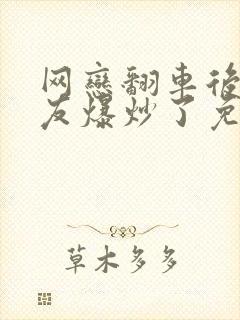 网戀翻車後
友爆炒了免
草木多多